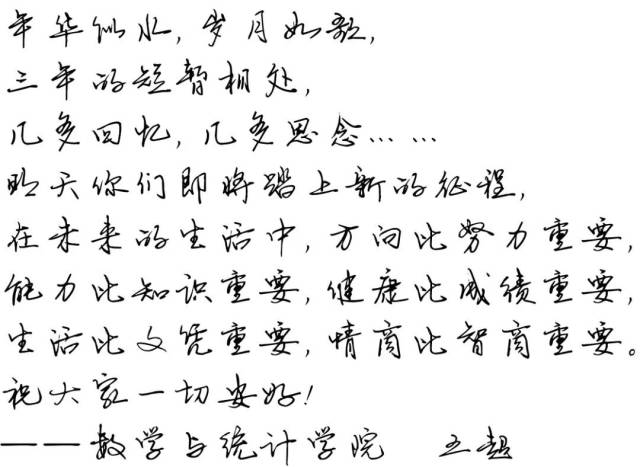 年华似水,岁月如歌,
三年的短暂相处,
几多回忆,几多思念……
昨天你们即将踏上新的征程,
在未来的生活中,方向比努力重要,
能力比知识重要,健康比成绩重要,
生活比文凭重要,情商比智商重要。
祝大家一切安好!
——数学与统计学院 王超